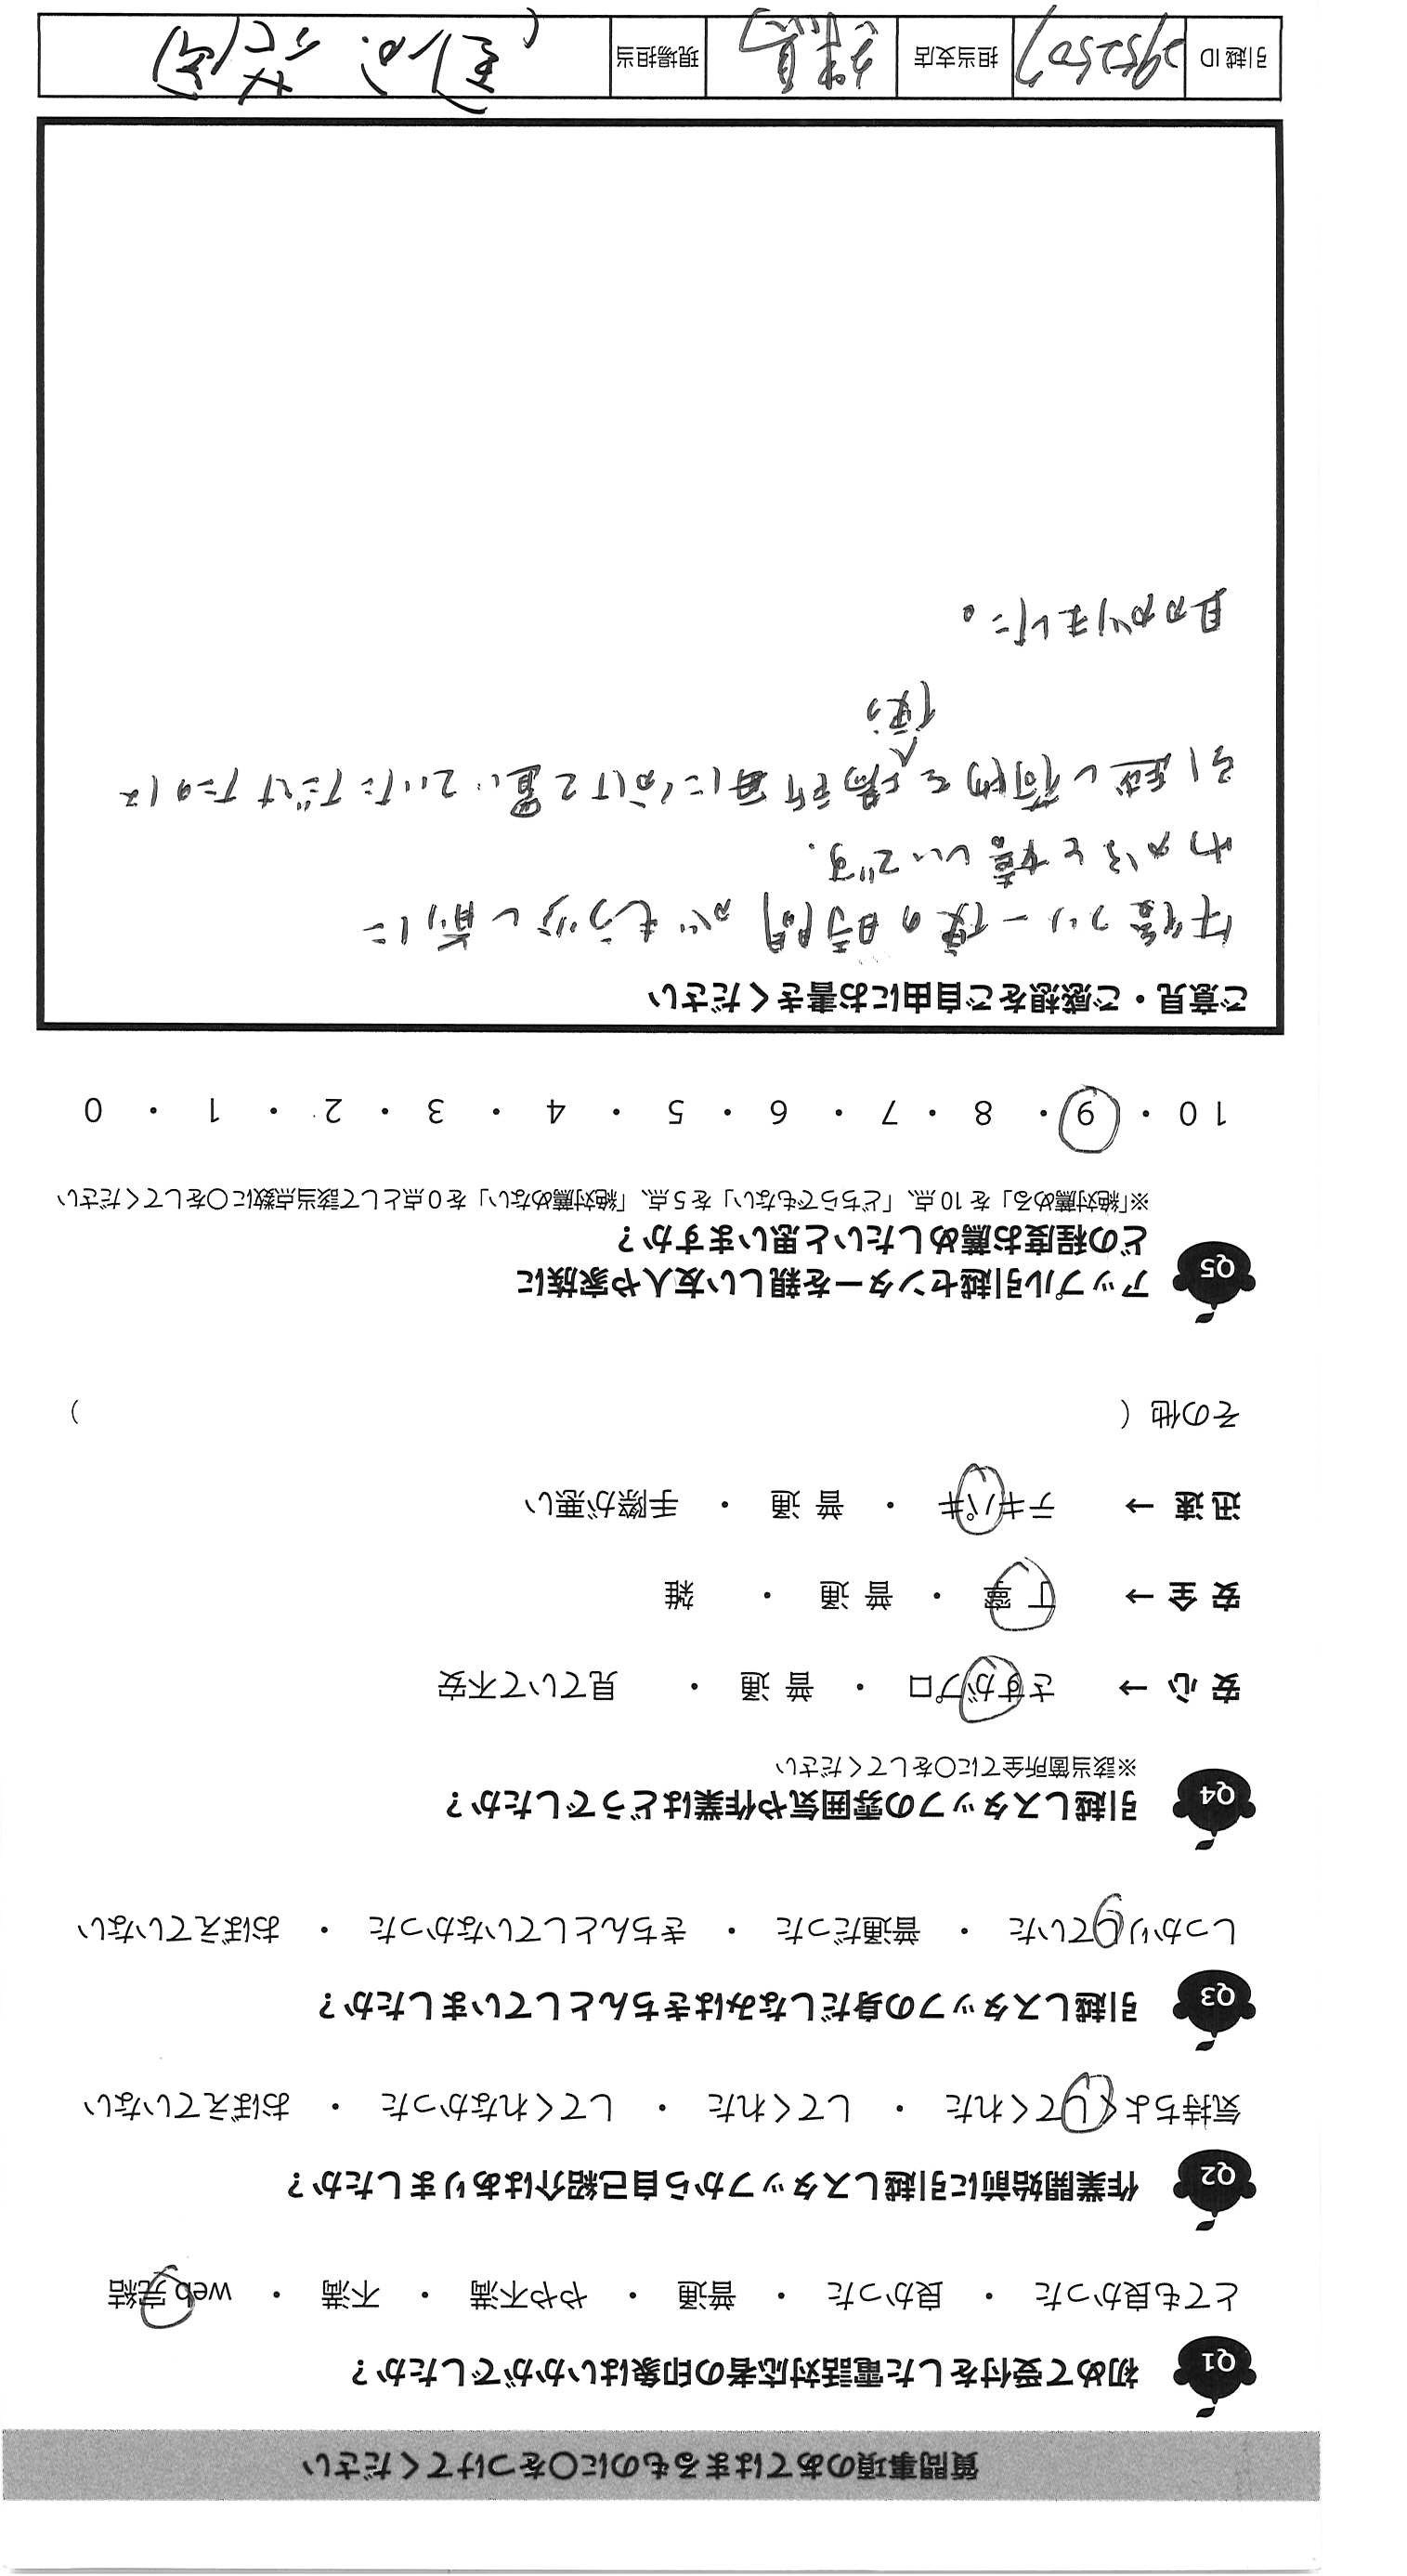 質問事項のあてはまるものに〇をつけてください
Q1 初めて受付をした電話対応者の印象はいかがでしたか？
とても良かった ・ 良かった ・ 普通 ・ やや不満 ・ 不満 ・ web 完結
Q2 作業開始前に引越しスタッフから自己紹介はありましたか？
気持ちよくしてくれた ・ してくれた ・ してくれなかった ・ おぼえていない
Q3 引越しスタッフの身だしなみはきちんとしていましたか？
しっかりしていた ・ 普通だった ・ きちんとしていなかった ・ おぼえていない
Q4 引越しスタッフの雰囲気や作業はどうでしたか？
※該当箇所全てに〇をしてください
安 心 → さすがプロ ・ 普 通 ・ 見ていて不安
安 全 → 丁 寧 ・ 普 通 ・ 雑
迅 速 → テキパキ ・ 普 通 ・ 手際が悪い
その他（ ）
Q5 アップル引越センターを親しい友人や家族に
どの程度お薦めしたいと思いますか？
※「絶対薦める」を 10 点、「どちらでもない」を 5 点、「絶対薦めない」を 0 点として該当点数に〇をしてください
10 ・ 9 ・ 8 ・ 7 ・ 6 ・ 5 ・ 4 ・ 3 ・ 2 ・ 1 ・ 0
ご意見・ご感想をご自由にお書きください
午後フリー便の時間がもう少し前に
わかると嬉しいです.
引越し荷物を使う場所毎に分けて置いていただけたのは
助かりました。
引越 ID 2952507 担当支店 練馬 現場担当